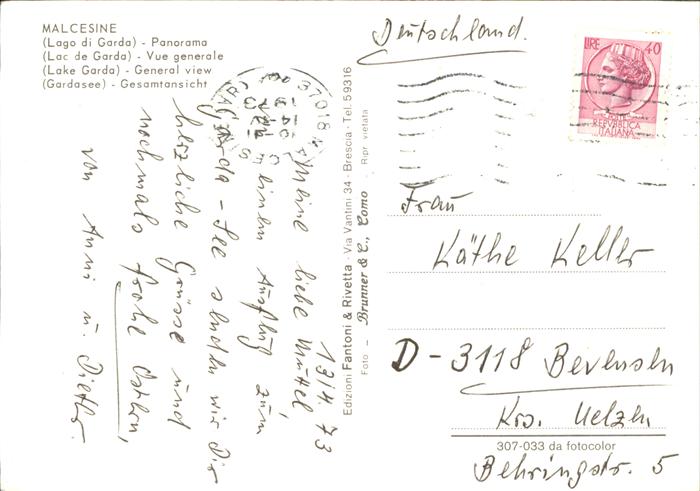 MALCESINE
(Lago di Garda) - Panorama
(Lac de Garda) - Vue generale
(Lake Garda) - General view
(Gardasee) - Gesamtansicht
13/4. 73
Meine liebe Muttel,
einem Ausflug zum
Garda-See senden wir Dir
herzliche Grüsse und
nochmals frohe Ostern,
von Anni u. Dieter.
Edizioni Fantoni & Rivetta - Via Vantini 34 - Brescia - Tel. 59316
Foto - Brunner & C., Como Ripr vietata
37018
Deutschland.
LIRE 40
POSTE
REPVBBLICA
ITALIANA
Frau
Käthe Keller
D - 3118 Bevensen
Krs. Uelzen
307-033 da fotocolor
Behringstr. 5